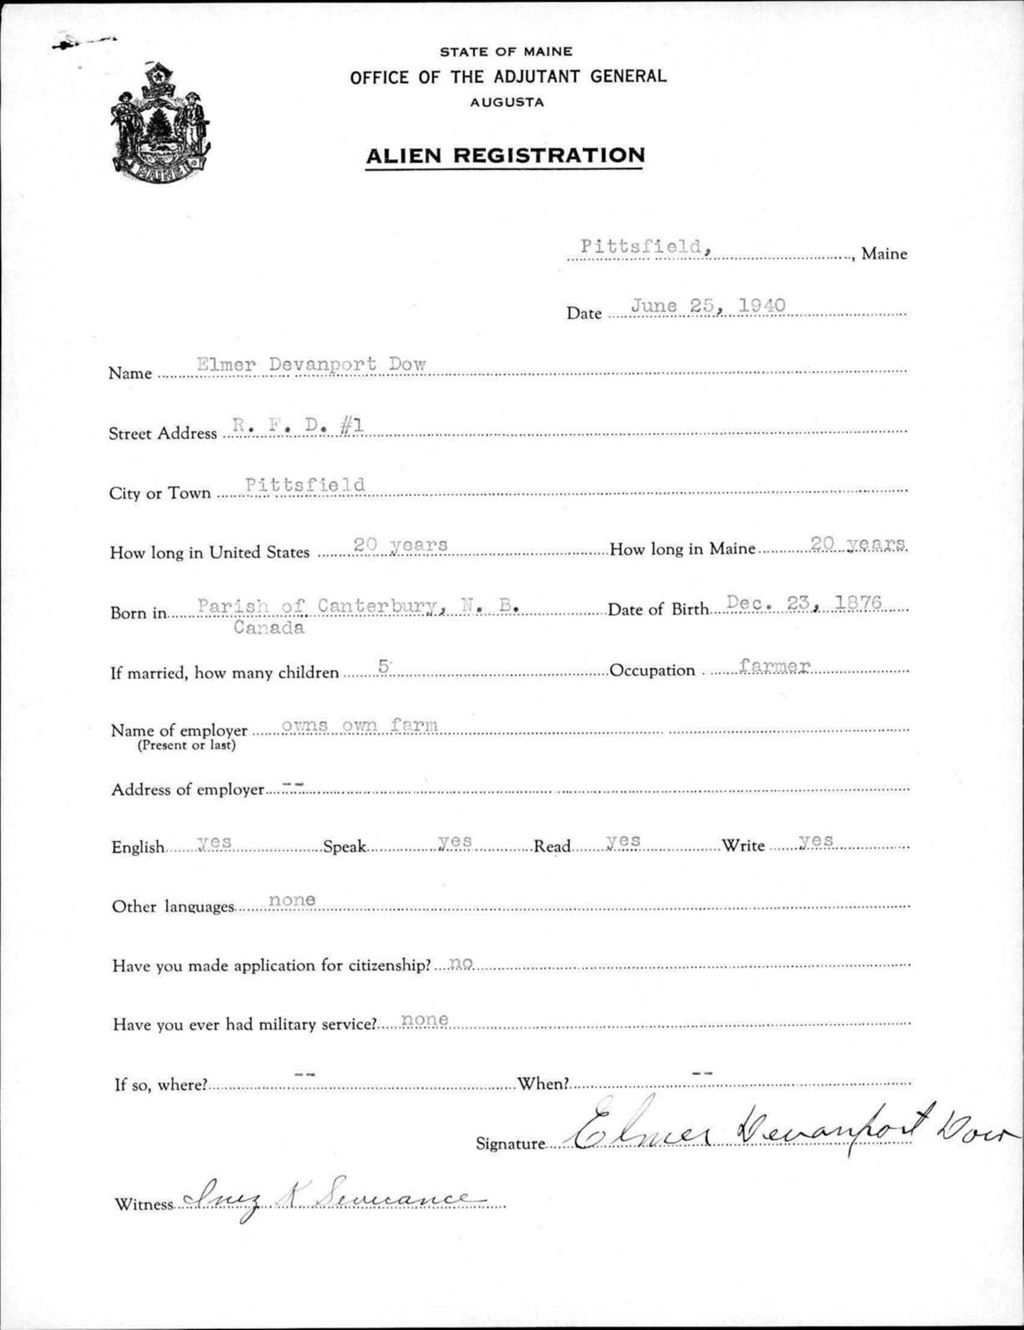 STATE OF MAINE
OFFICE OF THE ADJUTANT GENERAL
AUGUSTA
ALIEN REGISTRATION
MAINE
Pittsfield, , Maine
Date June 25, 1940
Name Elmer Devanport Dow
Street Address R. F. D. #1
City or Town Pittsfield
How long in United States 20 years How long in Maine 20 years
Born in Parish of Canterbury, N. B. Date of Birth Dec. 23, 1876
Canada
If married, how many children 5 Occupation farmer
Name of employer owns own farm
(Present or last)
Address of employer --
English yes Speak yes Read yes Write yes
Other languages none
Have you made application for citizenship? no
Have you ever had military service? none
If so, where? -- When? --
Signature Elmer Devanport Dow
Witness Inez K Severance